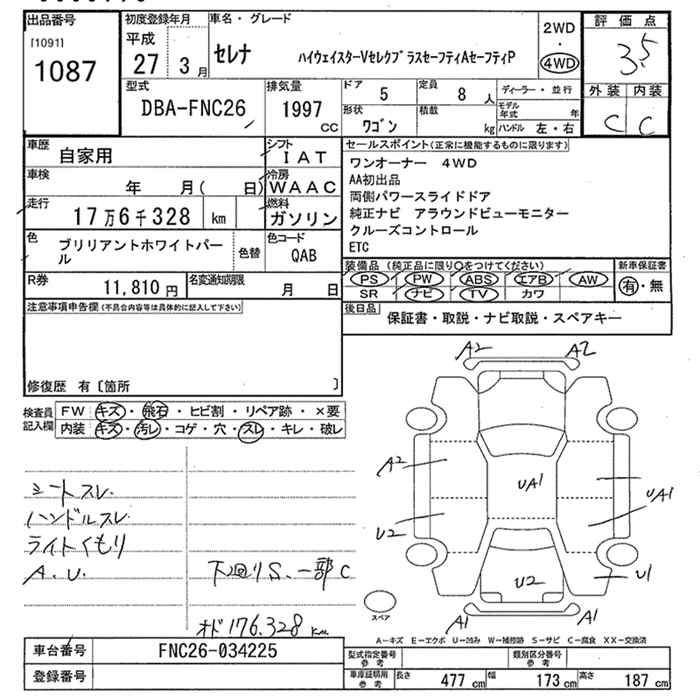 出品番号
[1091]
1087
初度登録年月
平成
27 3月
車名・グレード
セレナ ハイウェイスターVセレクブラスセーフティAセーフティP
2WD
・
4WD
評価点
3.5
外装 内装
C C
型式
DBA-FNC26
排気量
1997
cc
ドア
5
定員
8 人
ディーラー・並行
形状
ワゴン
積載
kg
モデル年式 年
ハンドル 左・右
車歴
自家用
シフト
I A T
車検
年 月( 日)
冷房
W A A C
走行
17万6千328 km
燃料
ガソリン
色
ブリリアントホワイトパール
色替
色コード
QAB
R券
11,810 円
名変通知期限
月 日
セールスポイント(正常に機能するものに限ります)
ワンオーナー 4WD
AA初出品
両側パワースライドドア
純正ナビ アラウンドビューモニター
クルーズコントロール
ETC
装備品 (純正品に限り○をつけてください)
PS PW ABS エアB AW
SR ナビ TV カワ
新車保証書
有・無
後日品
保証書・取説・ナビ取説・スペアキー
注意事項申告欄(不具合内容等は具体的に記入して下さい)
修復歴 有〔箇所 〕
検査員
記入欄
FW キズ・飛石・ヒビ割・リペア跡・×要
内装 キズ・汚レ・コゲ・穴・スレ・キレ・破レ
シートスレ
ハンドルスレ
ライトくもり
A.U.
下廻りS.一部C
オド176.328 km
A2 A2
A2
UA1
UA1
U2
U2
U1
A1 A1
スペア
A-キズ E-エクボ U-凹み W-補修跡 S-サビ C-腐食 XX-交換済
車台番号
FNC26-034225
登録番号
型式指定番号
参考
類別区分番号
参考
車庫証明用
参考
長さ 477 cm 幅 173 cm 高さ 187 cm